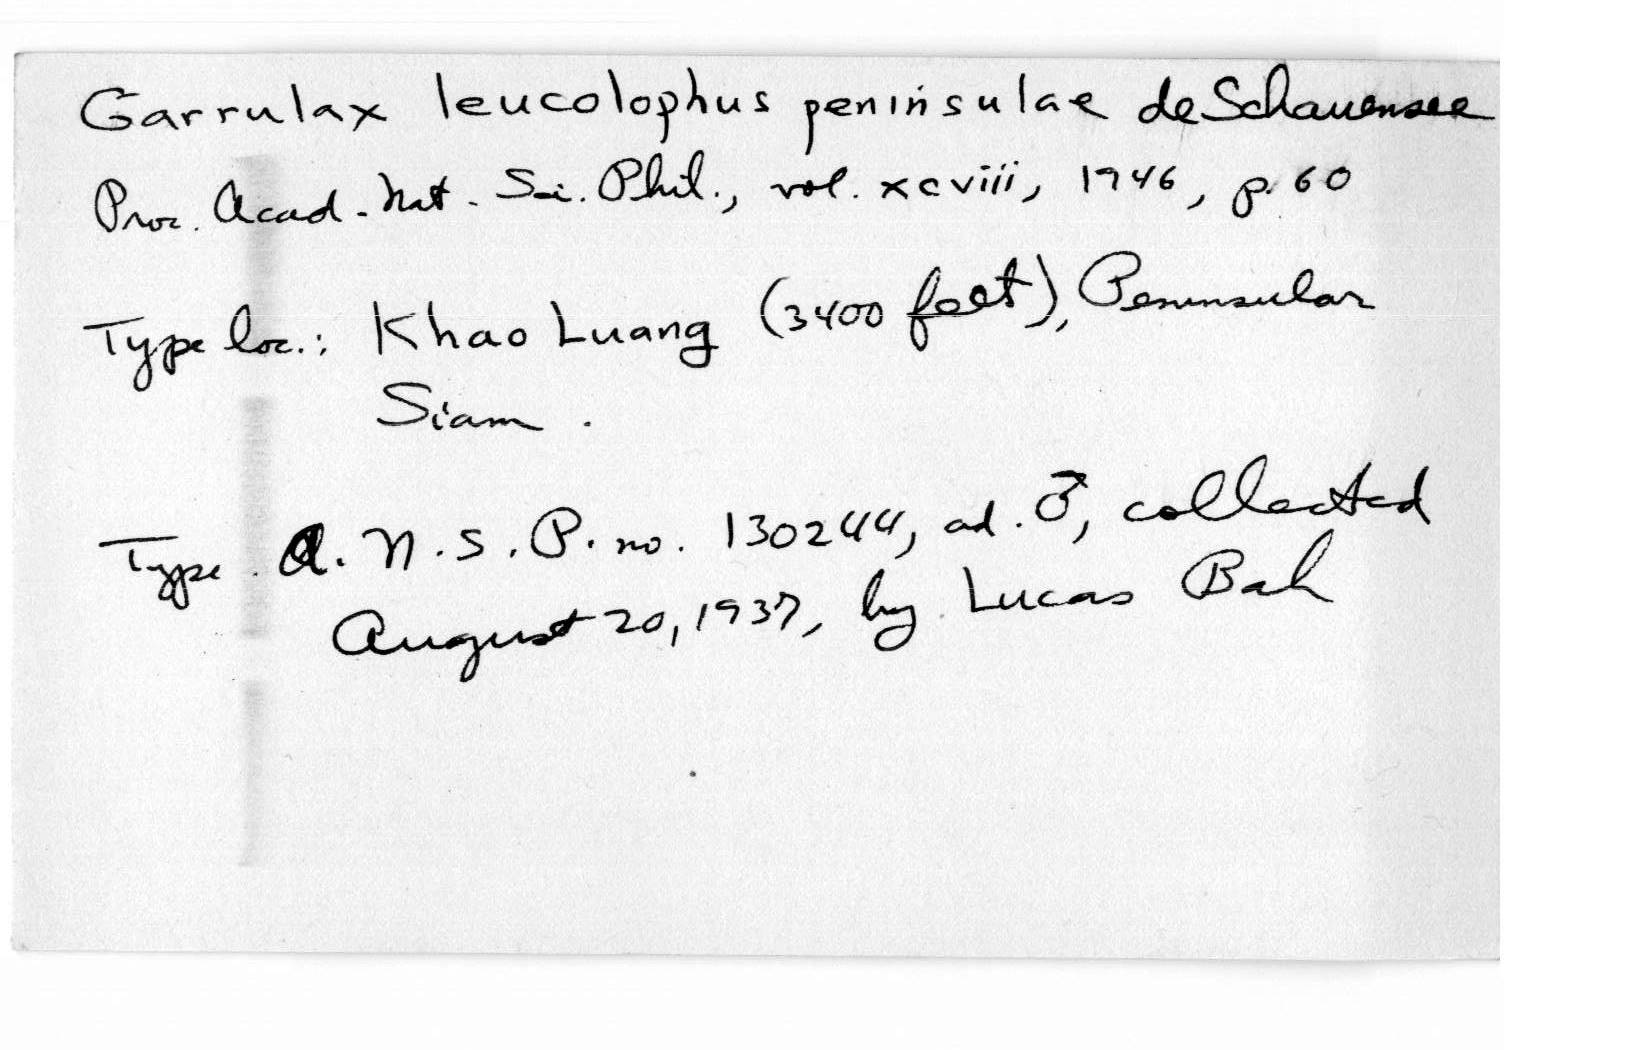 Garrulax leucolophus peninsulae deSchauensee
Proc. Acad. Nat. Sci. Phil., vol. xcviii, 1946, p. 60
Type loc.: Khao Luang (3400 feet), Peninsular
Siam.
Type. A.N.S.P. no. 130244, ad. ♂, collected
August 20, 1937, by Lucas Bah